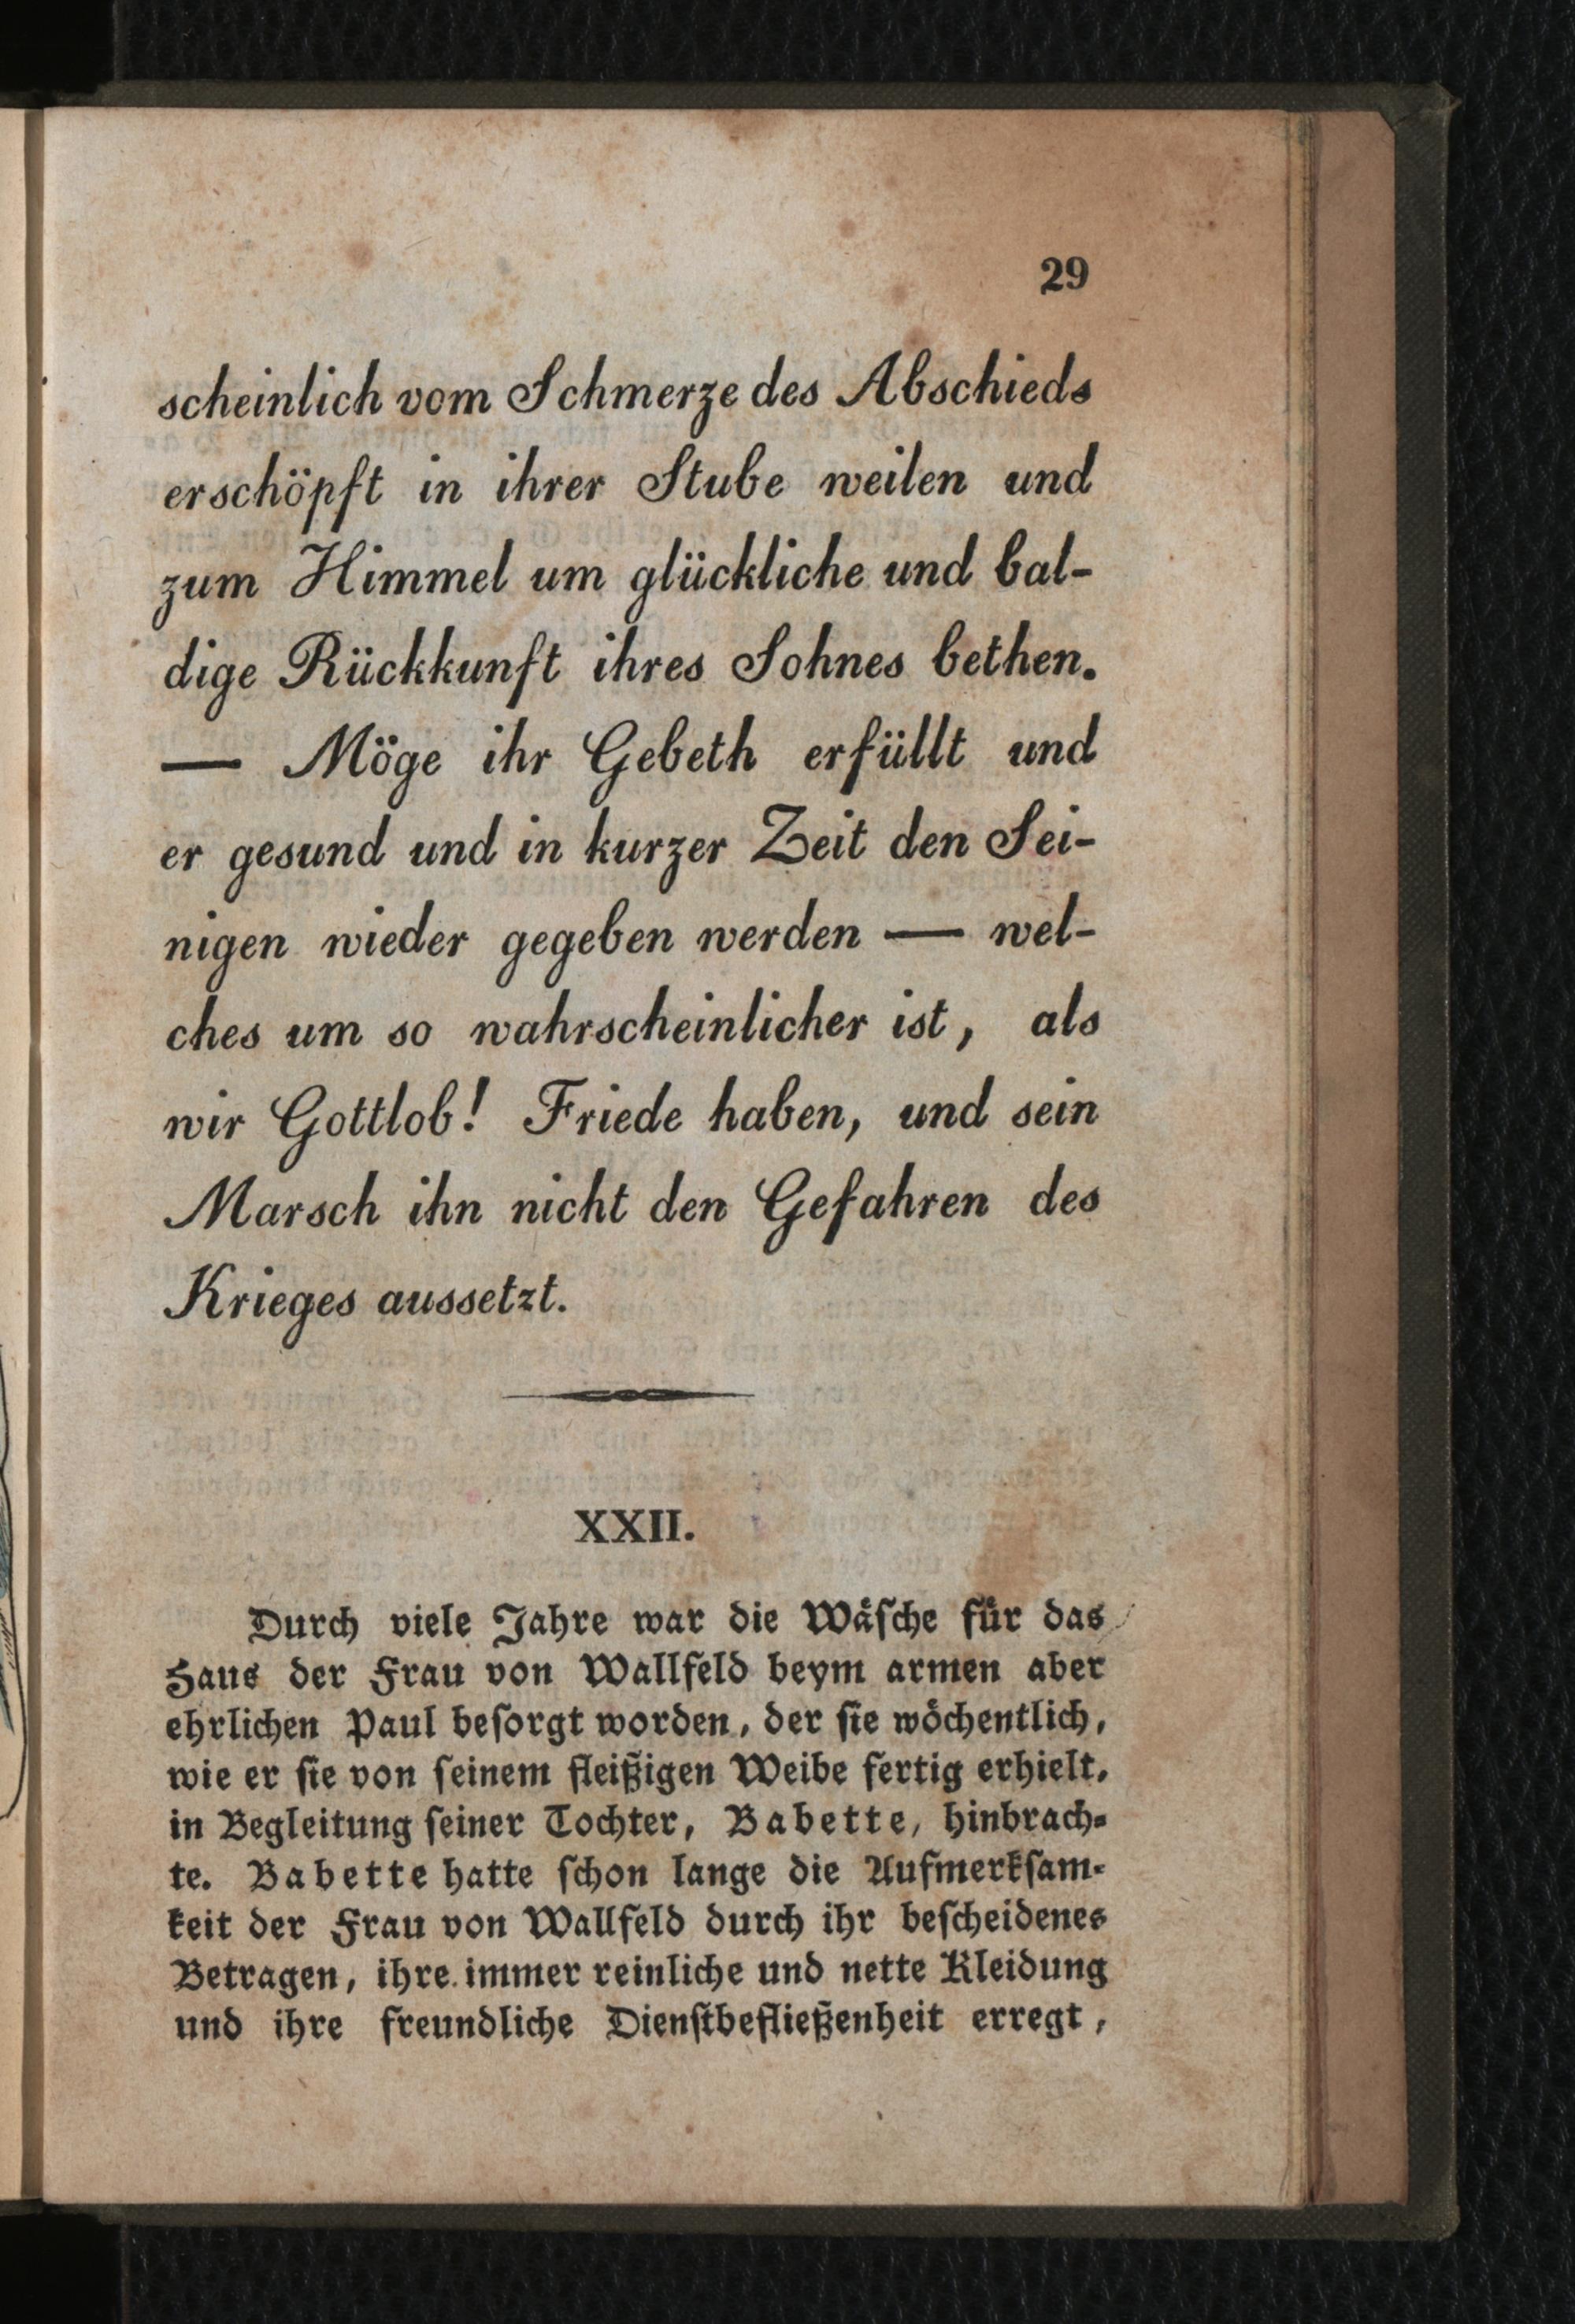 29
scheinlich vom Schmerze des Abschieds
erschöpft in ihrer Stube weilen und
zum Himmel um glückliche und bal-
dige Rückkunft ihres Sohnes bethen.
— Möge ihr Gebeth erfüllt und
er gesund und in kurzer Zeit den Sei-
nigen wieder gegeben werden — wel-
ches um so wahrscheinlicher ist, als
wir Gottlob! Friede haben, und sein
Marsch ihn nicht den Gefahren des
Krieges aussetzt.
XXII.
Durch viele Jahre war die Wäſche für das
Haus der Frau von Wallfeld beym armen aber
ehrlichen Paul beſorgt worden, der ſie wöchentlich,
wie er ſie von ſeinem fleißigen Weibe fertig erhielt,
in Begleitung ſeiner Tochter, Babette, hinbrach-
te. Babette hatte ſchon lange die Aufmerkſam-
keit der Frau von Wallfeld durch ihr beſcheidenes
Betragen, ihre immer reinliche und nette Kleidung
und ihre freundliche Dienſtbefließenheit erregt,